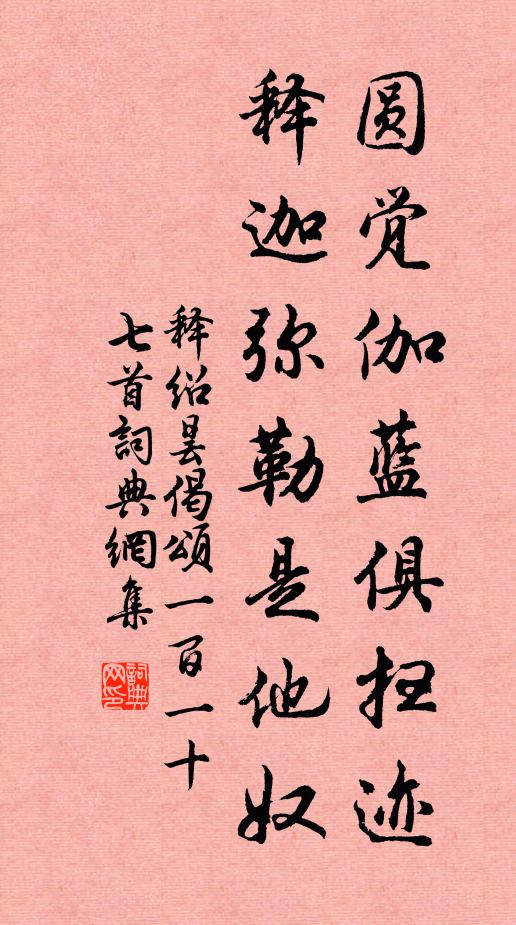 圆觉伽蓝俱扫迹
释迦弥勒是他奴
释绍昙偈頌一百一十
七首詞典網集
詞典网印